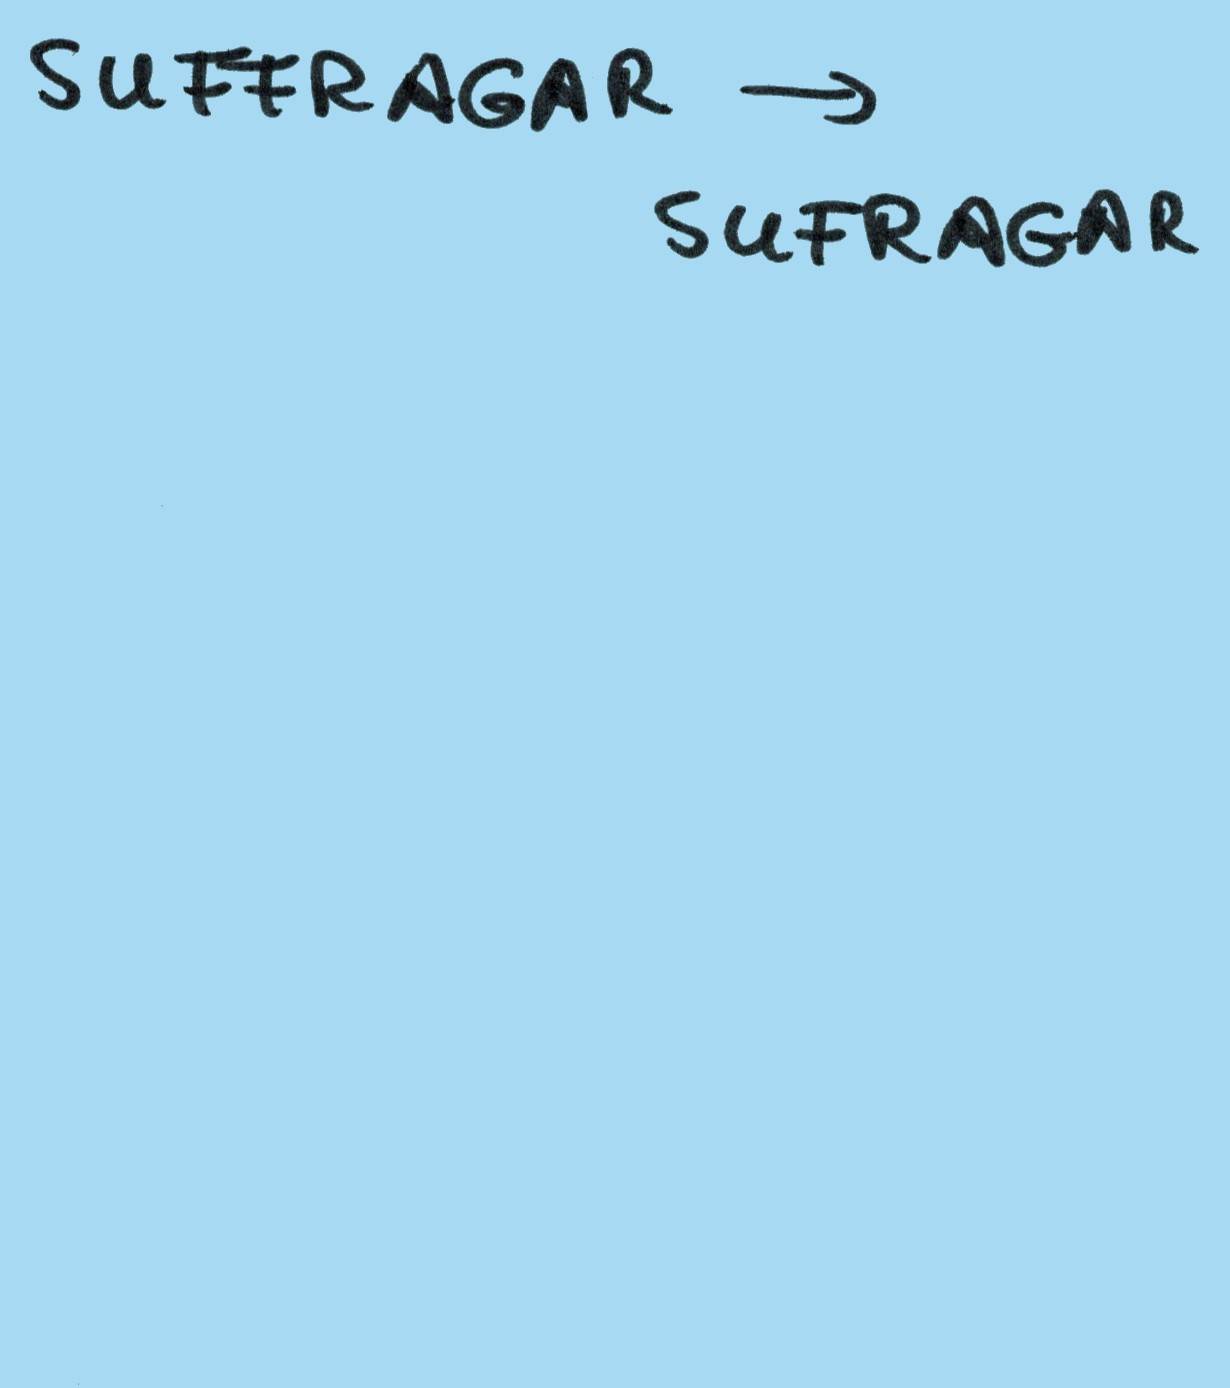 SUFFRAGAR →
SUFRAGAR